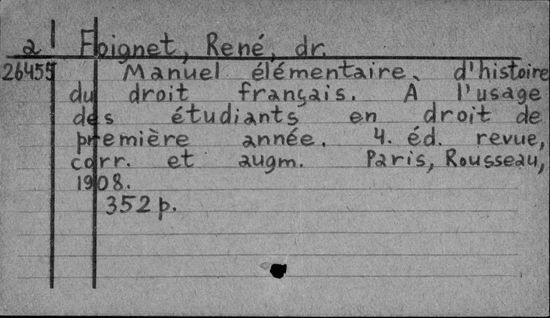 2 Foignet, René, dr.
26455 Manuel élémentaire d'histoire
du droit français. À l'usage
des étudiants en droit de
première année. 4. éd. revue,
corr. et augm. Paris, Rousseau,
1908.
352 p.